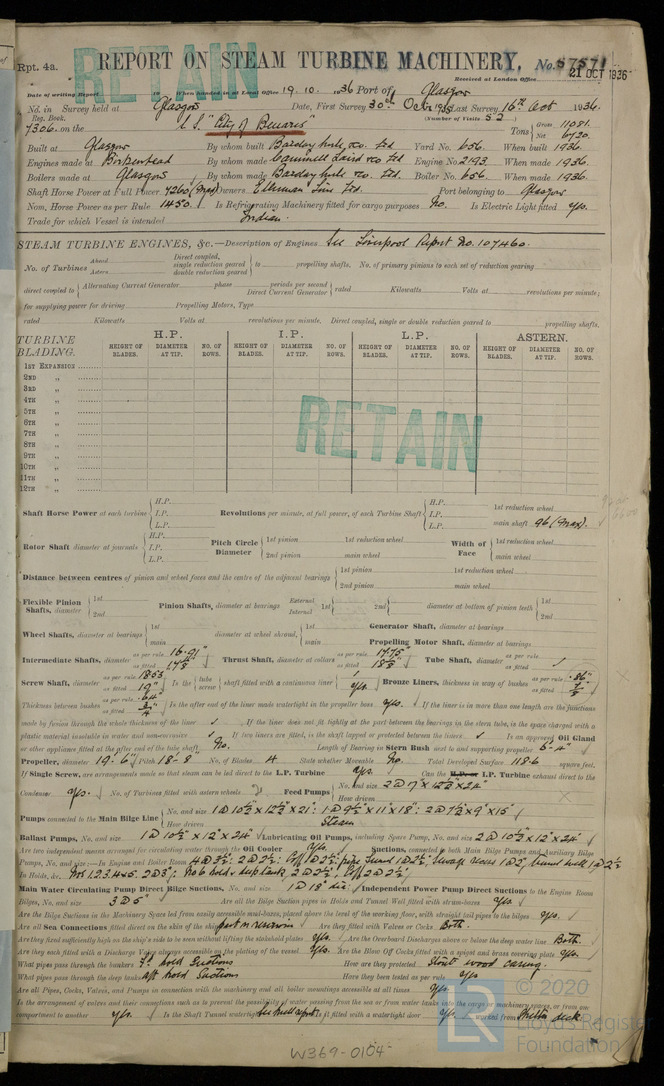 Rpt. 4a.
RETAIN
REPORT ON STEAM TURBINE MACHINERY. No. 57571
Received at London Office 21 OCT 1936
Date of writing Report 19 When handed in at Local Office 19.10.1936 Port of Glasgow
No. in Reg. Book. Survey held at Glasgow Date, First Survey 30th Last Survey 16th Oct 1936
7306. on the S.S. "City of Benares" (Number of Visits 52)
Tons Gross 11081. Net 6730.
Built at Glasgow By whom built Barclay Curle & Co. Ltd Yard No. 656 When built 1936
Engines made at Birkenhead By whom made Cammell Laird & Co Ltd Engine No. 2193 When made 1936
Boilers made at Glasgow By whom made Barclay Curle & Co. Ltd Boiler No. 656 When made 1936
Shaft Horse Power at Full Power 7260 (Max) Owners Ellerman Lines Ltd. Port belonging to Glasgow
Nom. Horse Power as per Rule 1450 Is Refrigerating Machinery fitted for cargo purposes No. Is Electric Light fitted Yes.
Trade for which Vessel is intended Indian.
STEAM TURBINE ENGINES, &c.—Description of Engines See Liverpool Report No. 107460.
No. of Turbines Ahead Astern Direct coupled, single reduction geared double reduction geared to propelling shafts. No. of primary pinions to each set of reduction gearing
direct coupled to Alternating Current Generator phase periods per second Direct Current Generator rated Kilowatts Volts at revolutions per minute;
for supplying power for driving Propelling Motors, Type
rated Kilowatts Volts at revolutions per minute. Direct coupled, single or double reduction geared to propelling shafts.
TURBINE BLADING. H.P. I.P. L.P. ASTERN.
HEIGHT OF BLADES. DIAMETER AT TIP. NO. OF ROWS. HEIGHT OF BLADES. DIAMETER AT TIP. NO. OF ROWS. HEIGHT OF BLADES. DIAMETER AT TIP. NO. OF ROWS. HEIGHT OF BLADES. DIAMETER AT TIP. NO. OF ROWS.
1ST EXPANSION
2ND „
3RD „
4TH „
5TH „
6TH „
7TH „
8TH „
9TH „
10TH „
11TH „
12TH „
RETAIN
Shaft Horse Power at each turbine H.P. I.P. L.P. Revolutions per minute, at full power, of each Turbine Shaft H.P. I.P. L.P. 1st reduction wheel main shaft 96 (Max).
Rotor Shaft diameter at journals H.P. I.P. L.P. Pitch Circle Diameter 1st pinion 2nd pinion 1st reduction wheel main wheel Width of Face 1st reduction wheel main wheel
Distance between centres of pinion and wheel faces and the centre of the adjacent bearings 1st pinion 2nd pinion 1st reduction wheel main wheel
Flexible Pinion Shafts, diameter 1st 2nd Pinion Shafts, diameter at bearings External Internal 1st 2nd diameter at bottom of pinion teeth 1st 2nd
Wheel Shafts, diameter at bearings 1st main diameter at wheel shroud, 1st main Generator Shaft, diameter at bearings Propelling Motor Shaft, diameter at bearings
Intermediate Shafts, diameter as per rule 16.91" as fitted 17 1/8" Thrust Shaft, diameter at collars as per rule 17.75" as fitted 18 1/8" Tube Shaft, diameter as per rule as fitted
Screw Shaft, diameter as per rule 18.53 as fitted 19" Is the tube screw shaft fitted with a continuous liner Yes. Bronze Liners, thickness in way of bushes as per rule .86" as fitted 7/8"
Thickness between bushes as per rule .64" as fitted 3/4" Is the after end of the liner made watertight in the propeller boss Yes. If the liner is in more than one length are the junctions
made by fusion through the whole thickness of the liner If the liner does not fit tightly at the part between the bearings in the stern tube, is the space charged with a
plastic material insoluble in water and non-corrosive If two liners are fitted, is the shaft lapped or protected between the liners Is an approved Oil Gland
or other appliance fitted at the after end of the tube shaft No. Length of Bearing in Stern Bush next to and supporting propeller 6'-4"
Propeller, diameter 19'-6" Pitch 18'-8" No. of Blades 4 State whether Moveable No. Total Developed Surface 118.6 square feet.
If Single Screw, are arrangements made so that steam can be led direct to the L.P. Turbine Yes. Can the H.P. or I.P. Turbine exhaust direct to the
Condenser Yes. No. of Turbines fitted with astern wheels 2 Feed Pumps No. and size How driven
Pumps connected to the Main Bilge Line No. and size 1 @ 10½" x 12" x 21": 1 @ 9½" x 11" x 18": 2 @ 7½" x 9" x 15" How driven Steam
Ballast Pumps, No. and size 1 @ 10½" x 12" x 24" Lubricating Oil Pumps, including Spare Pump, No. and size 2 @ 10½" x 12" x 24"
Are two independent means arranged for circulating water through the Oil Cooler Yes. Suctions, connected to both Main Bilge Pumps and Auxiliary Bilge
Pumps, No. and size:—In Engine and Boiler Room
In Holds, &c.
Main Water Circulating Pump Direct Bilge Suctions, No. and size 1 @ 18" dia. Independent Power Pump Direct Suctions to the Engine Room
Bilges, No. and size 3 @ 5" Are all the Bilge Suction pipes in Holds and Tunnel Well fitted with strum-boxes Yes.
Are the Bilge Suctions in the Machinery Space led from easily accessible mud-boxes, placed above the level of the working floor, with straight tail pipes to the bilges Yes.
Are all Sea Connections fitted direct on the skin of the ship Are they fitted with Valves or Cocks Both.
Are they fixed sufficiently high on the ship's side to be seen without lifting the stokehold plates Yes. Are the Overboard Discharges above or below the deep water line Both.
Are they each fitted with a Discharge Valve always accessible on the plating of the vessel Yes. Are the Blow Off Cocks fitted with a spigot and brass covering plate Yes.
What pipes pass through the bunkers hold Suctions How are they protected Stout wood casing
What pipes pass through the deep tanks aft hold Suctions Have they been tested as per rule Yes
Are all Pipes, Cocks, Valves, and Pumps in connection with the machinery and all boiler mountings accessible at all times Yes.
Is the arrangement of valves and their connections such as to prevent the possibility of water passing from the sea or from water tanks into the cargo or machinery spaces, or from one
compartment to another Yes. Is the Shaft Tunnel watertight See hull report Is it fitted with a watertight door Yes worked from Shelter deck
© 2020
LR
Lloyd's Register
Foundation
W369-0104